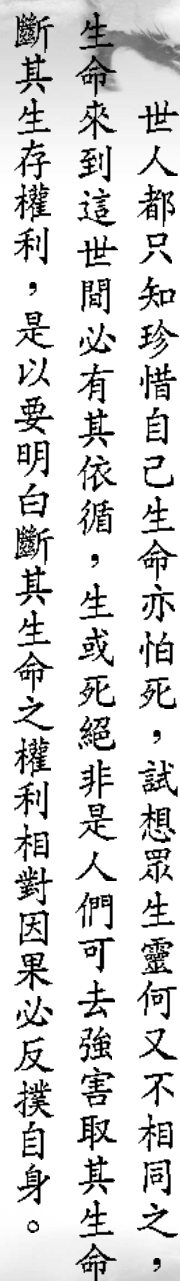 世人都只知珍惜自己生命亦怕死，試想眾生靈何又不相同之，
生命來到這世間必有其依循，生或死絕非是人們可去強害取其生命
斷其生存權利，是以要明白斷其生命之權利相對因果必反撲自身。